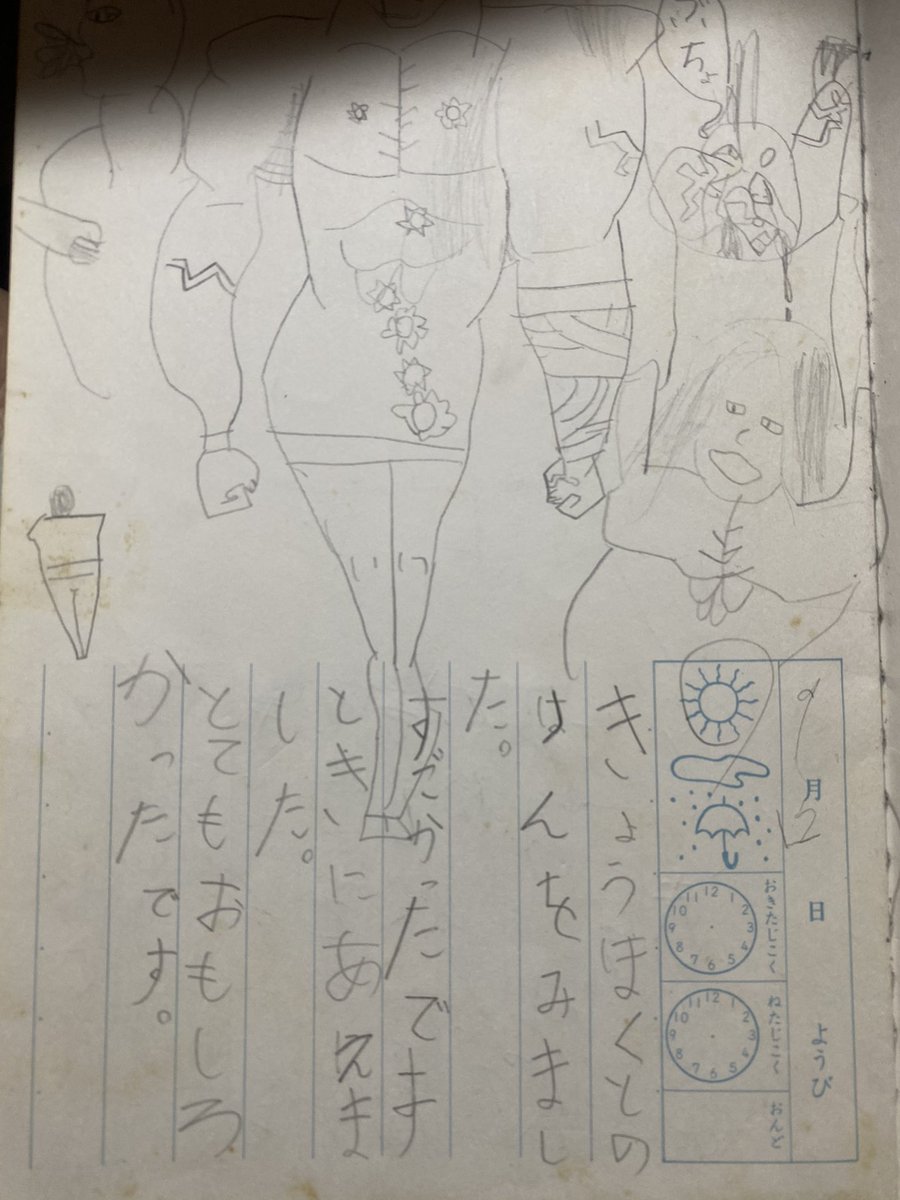 9月12日 ようび
おきたじこく
ねたじこく
おんど
きょうほくとの
けんをみまし
た。
すだかったです
ときいにあえま
した。
とてもおもしろ
かったです。